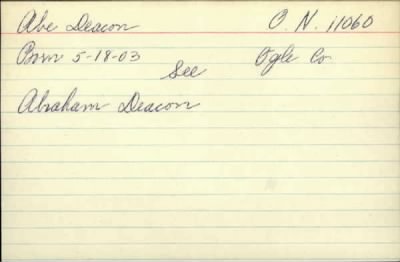 Abe Deacon O. N. 11060
Born 5-18-03 Ogle Co.
See
Abraham Deacon